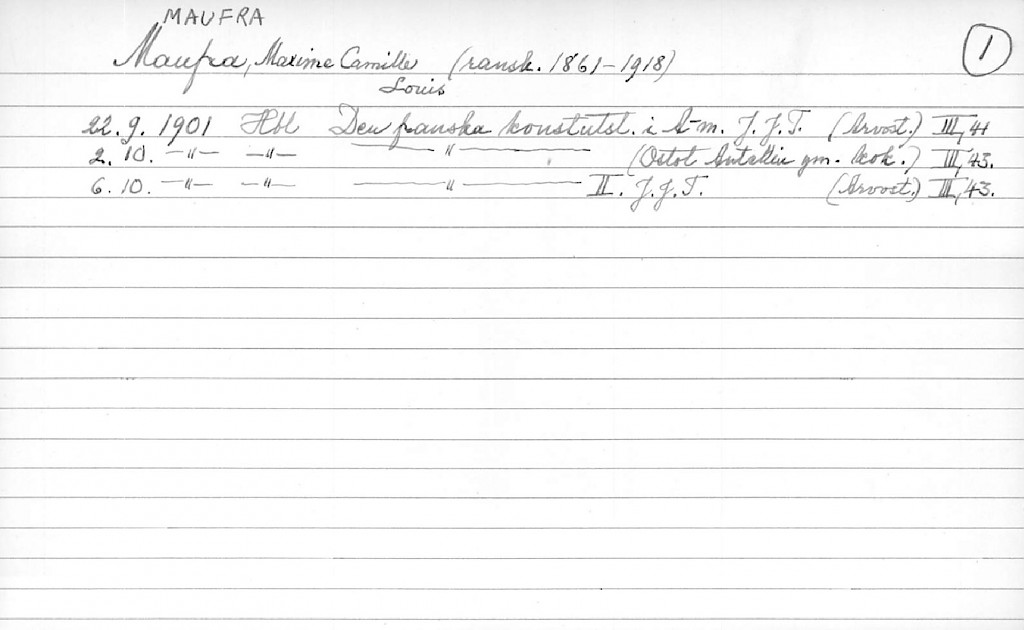 MAUFRA
Maufra, Maxime Camille (ransk. 1861-1918) 1
Louis
22.9.1901 Hbl Den franska konstutst. i A-m. J.J.T. (Arvost.) III, 41
2.10. -"- -"- -"- (Ostot Antellin ym. kok.) III, 43.
6.10. -"- -"- -"- II. J.J.T. (Arvost.) III, 43.